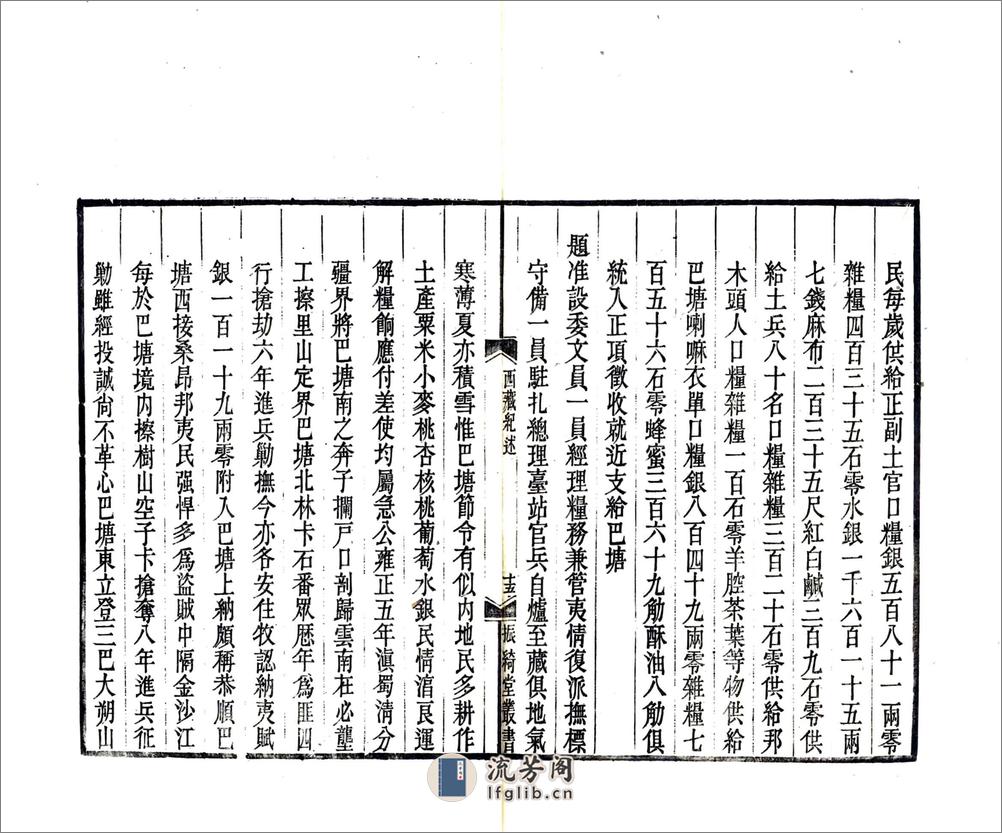 民每歲供給正副土官口糧銀五百八十一兩零
雜糧四百三十五石零水銀一千六百一十五兩
七錢麻布二百三十五尺紅白鹹三百九石零供
給土兵八十名口糧雜糧三百二十石零供給邦
木頭人口糧雜糧一百石零羊腔茶葉等物供給
巴塘喇嘛衣單口糧銀八百四十九兩零雜糧七
百五十六石零蜂蜜三百六十九觔酥油八觔俱
統入正項徵收就近支給巴塘
題准設委文員一員經理糧務兼管夷情復派撫標
守備一員駐扎總理臺站官兵自爐至藏俱地氣
西藏紀述
振綺堂叢書
寒薄夏亦積雪惟巴塘節令有似內地民多耕作
土產粟米小麥桃杏核桃葡萄水銀民情涫良運
解糧餉應付差使均屬急公雍正五年滇蜀清分
疆界將巴塘南之奔子攔戸口剖歸雲南在必壟
工擦里山定界巴塘北林卡石番眾歷年為匪四
行搶劫六年進兵勦撫今亦各安住牧認納夷賦
銀一百一十九兩零附入巴塘上納頗稱恭順巴
塘西接桑昂邦夷民强悍多為盜賊中隔金沙江
每於巴塘境內擦樹山空子卡搶奪八年進兵征
勦雖經投誠尙不革心巴塘東立登三巴大朔山
流芳阁
lfglib.cn